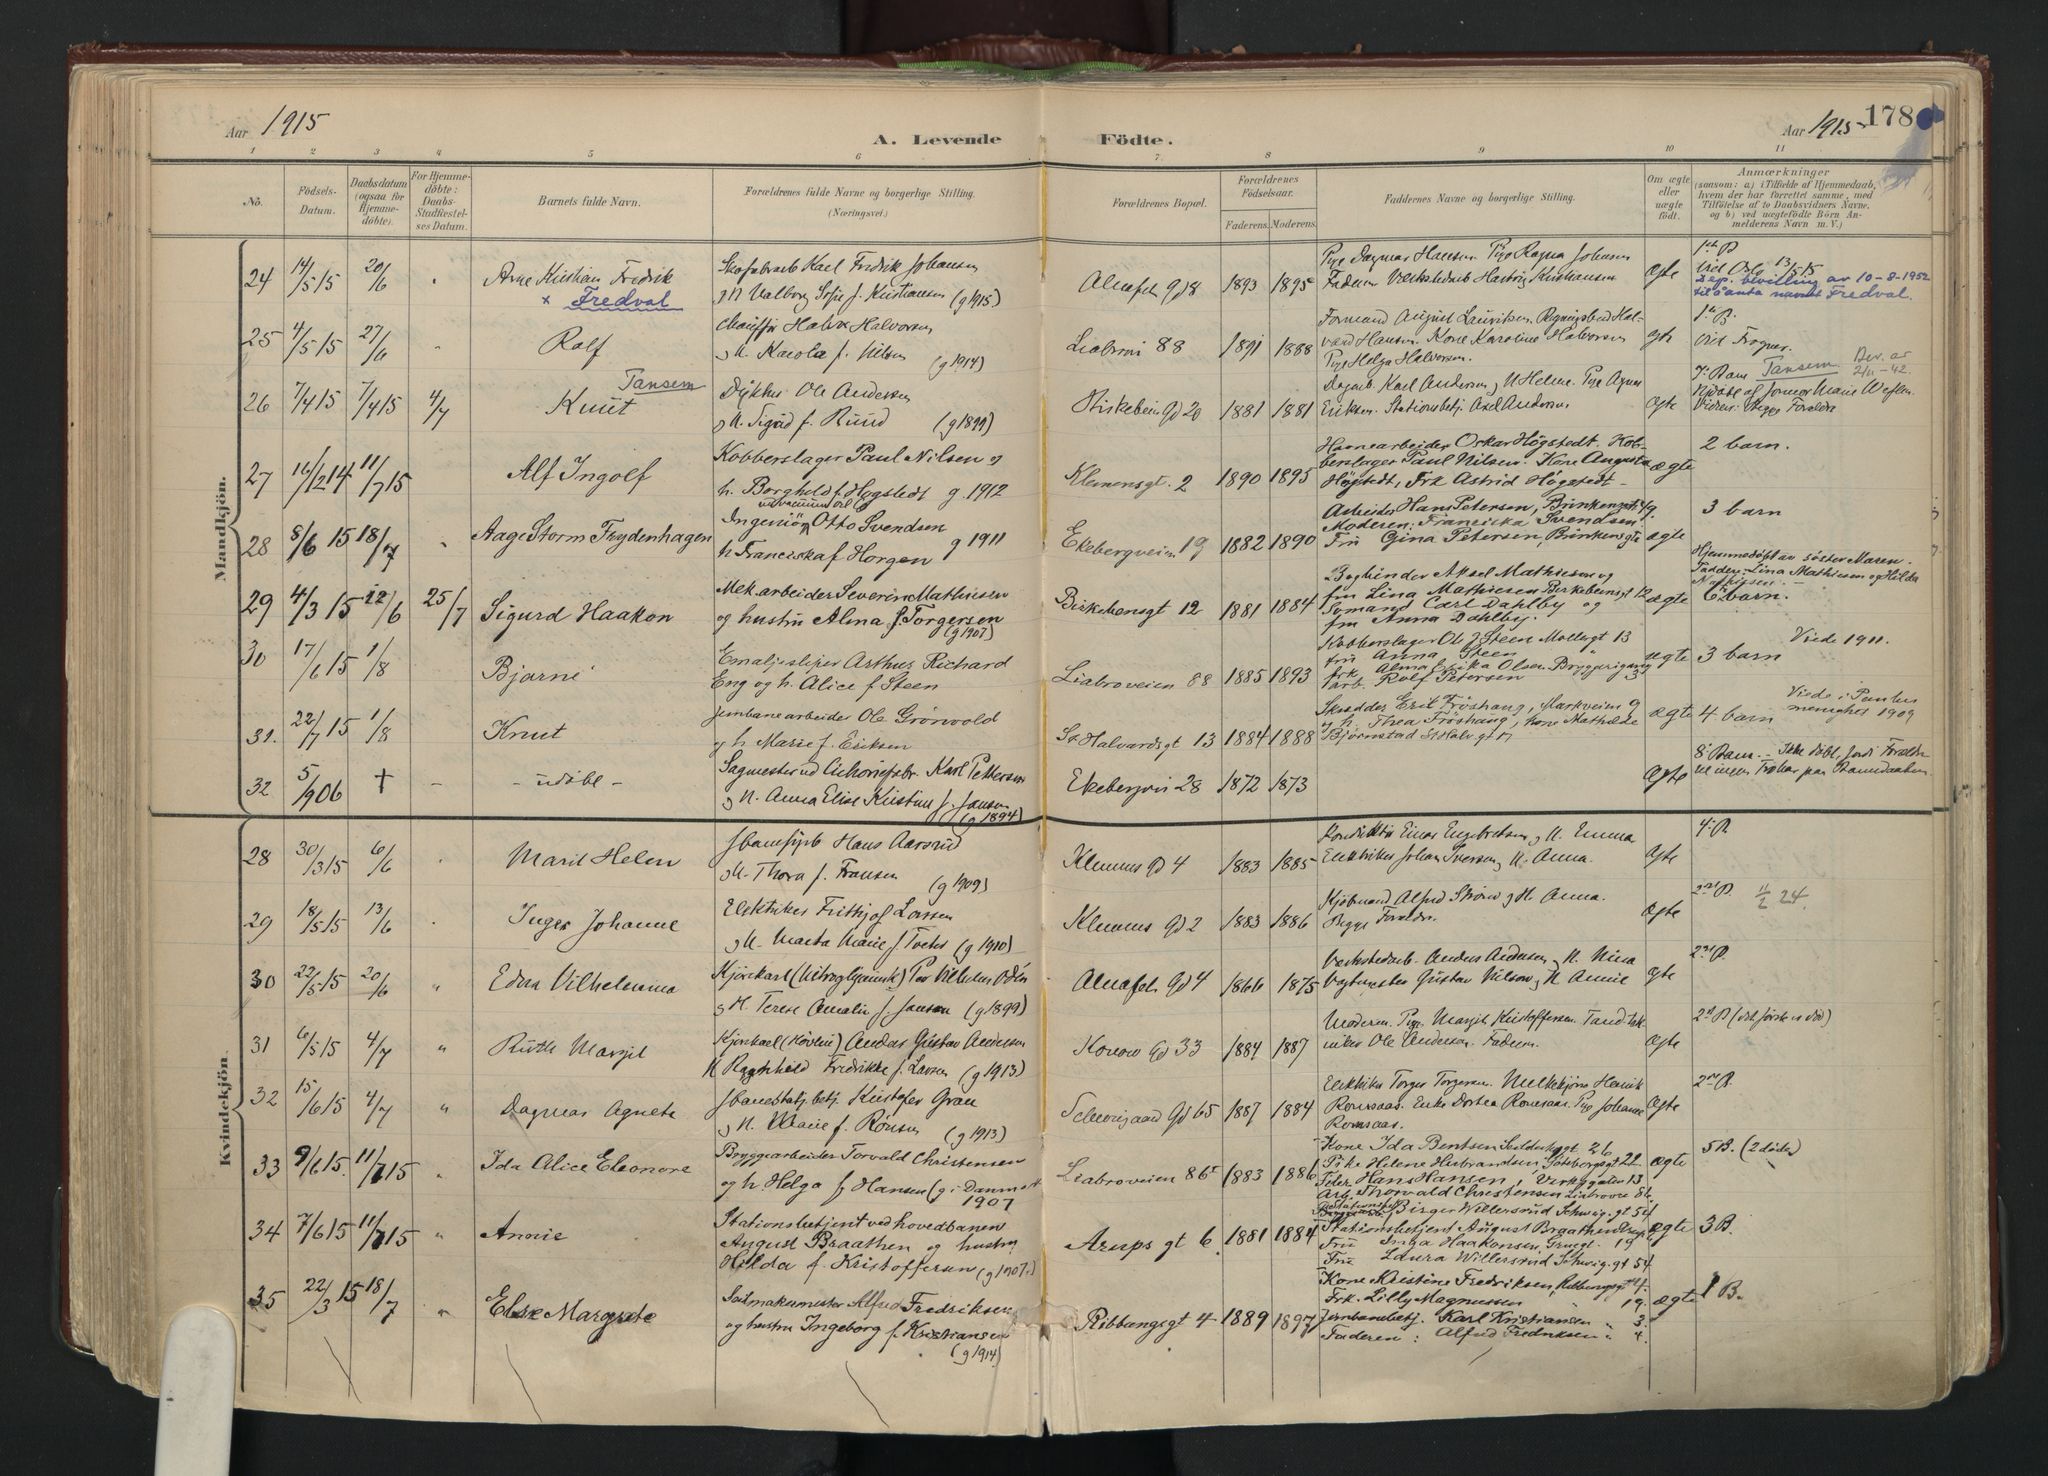 Aar 1915
A. Levende Födte.
Aar 1915
178
1 2 3 4 5 6 7. 8 9 10 11
No.
Födsels-Datum.
Daabsdatum (ogsaa for Hjemmedöbte).
For Hjemmedöbte: Daabs-Stadfæstelses Datum.
Barnets fulde Navn.
Forældrenes fulde Navne og borgerlige Stilling. (Næringsvei.)
Forældrenes Bopæl.
Forældrenes Födselsaar.
Faderens. Moderens.
Faddernes Navne og borgerlige Stilling.
Om ægte eller uægte födt.
Anmærkninger
(saasom: a) i Tilfælde af Hjemmedaab, hvem der har forrettet samme, med Tilföielse af to Daabsvidners Navne, og b) ved uægtefödte Börn Anmelderens Navn m. V.)
Mandkjön.
24 14/5 15 20/6 " Arne Kristian Fredrik
x Fredval
Karl Fredrik Johansen
og H Valborg Sofie f. Kristiansen (g 1915)
Almafeh gd 8 1893 1895
Pige Dagmar Hansen Pige Ragna Johansen
Faderen Verkstedarb Kristiansen
ægte
1ste B
viet Oslo 13/5 15
Dep. bevilling av 10-8-1952
til å anta navnet Fredval.
25 4/5 15 27/6 " Rolf
Halvorsen
og H. Karola f. Nilsen (g 1914)
Liabrovei 88 1891 1888
Formand August Lauritsen
Hansen. Kone Karoline Halvorsen
Pige Helga Halvorsen.
1ste B.
viet Frogner.
26 7/4 15 7/4 15 4/7 Knut Tansem
Ole Andersen
og H. Sigrid f. Ruud (g 1899)
gd 20 1881 1881
Dagarb. Karl Andersen og H Helene. Pige Agnes
Eriksen. Stationsbetj. Axel Andersen
ægte
7. Barn Tansem Bev. av 2/11-42.
27 16/12 14 11/7 15 Alf Ingolf
Kobberslager Paul Nilsen og
h. Borghild f. Høgstedt g. 1912
Klemensgt. 2 1890 1895
Havnearbeider Oskar Høgstedt. Kobberslager Paul Nilsen. Kone Augusta
Høgstedt, Frk Astrid Høgstedt
ægte
2 barn.
28 8/6 15 18/7 " Aage Storm Frydenhagen
Ingeniør Otto Svendsen
h. Franciska f Horgen g 1911
Ekebergveien 19 1882 1890
Arbeider Hans Petersen,
Moderen: Franciska Svendsen
Fru Gina Petersen,
ægte
3 barn
29 4/3 15 12/6 25/7 Sigurd Haakon
Mek. arbeider Severin Mathiesen
og hustru Alma f. Torgersen
(g 1907)
Birkebensgt 12 1881 1884
Bogbinder Aksel Mathiesen og
fru Lina Mathiesen Birkebeinsgt 12
Sømand Carl Dahlby og
fru Anna Dahlby.
ægte
Hjemmedøbt av søster Maren.
Faddere: Lina Mathiesen og Hilda
Mathiesen.
6te barn.
30 17/6 15 1/8 Bjarne
Emaljesliper Arthur Richard
Eng og h. Alice f. Steen
Liabroveien 88 1885 1893
Kobberslager Ole J Steen Mollergt 13
fru Anna Steen
frk Alma Erika Olsen Bryggerigang
arb. Rolf Petersen
ægte
3 barn
Viede 1911.
31. 22/7 15 1/8 Knut
Jernbanearbeider Ole Grönvold
og h. Marie f. Eriksen
St. Halvardsgt 13 1884 1888
Skrædder Erik Fröshaug, Markveien 9
og h. Thea Fröshaug, kone Mathilde
Bjørnstad St Halv gt
ægte
4 barn
Viede i Paulus menighet 1909
32 5/9 06 + – - udöbt -
Karl Pettersen
og H. Anna Elise Kristine f. Jansen
(g 1894)
Ekebergvei 28 1872 1873
ægte
8. Barn. – Ikke døbt, fordi Forældrene ingen
Kvindekjön.
28 30/3 15 6/6 " Marit Helen
Hans Aarsrud
og H. Thora f. Fransen (g 1909)
Klemens gd 4 1883 1885
Konduktør Einar Engebretsen og H. Emma
Elektriker Johan Iversen og H. Anna.
ægte
4. B.
29 18/5 15 13/6 " Inger Johanne
Elektriker Frithjof Larsen
og H. Marta Marie f. Tveter (g 1910)
Klemens gd 2 1883 1886
Kjøbmand Alfred Strøm og H. Anna.
Begge Forældre.
ægte
2den B. 11/2 24.
30 22/5 15 20/6 " Edna Vilhelmina
Kjørekarl (Nitroglycerinsk) Per Vilhelm Odén
og H. Terese Amalie f. Jansen (g 1899)
Almafeh gd 4 1866 1875
Verkstedarb. Anders Andersen og H. Nina
Gustav Nilsen og H Annie
ægte
2den B.
31 6/5 15 4/7 " Ruth Margit
Kjørekarl Andas Gustav Andersen
H Ragnhild Fredrikke f. Larsen (g 1913)
Konow gd 33 1884 1887
Moderen. Pige Margit Kristoffersen. Tandtekniker Ole Andersen. Faderen.
ægte
2den B (det første er død)
32 15/6 15 4/7 " Dagmar Agnete
Kristofer Grau
og H. Marie f. Rønsen (g 1913)
gd 65 1887 1884
Elektriker Torger Torgersen. Henrik
Ronsaas. Enke Dortea Ronsaas. Pige Johanne
Ronsaas.
ægte
2den B.
33 9/6 15. 11/7 15 " Ida Alice Eleonore
Bryggearbeider Torvald Christensen
og h. Helga f Hansen (g. i Danmark
1907
Liabroveien 86 1883 1886
Kone Ida Bentsen 26
Pike Helene Husbrandsen, Göteborgsgt 22
Hans Hansen, 13
Arb. Thorvald Christensen Liabrovei 86.
ægte
5 B. (2 döde)
34 7/6 15 11/7 15 " Annie
Stationsbetjent ved hovedbanen
August Braathen og hustru
Hilda f. Kristoffersen (g 1907.)
Arups gt 6. 1881 1884
Birger Willersrud Schweig. gt 54
Stationsbetjent August Braathen
Fru Inga Haakonsen, 19
Fru Laura Willersrud Schweig. gt 54
ægte
3 B.
35 22/3 15 18/7 " Else Margrete
Seilmakermester Alfred Fredriksen
og hustru Ingeborg f. Kristiansen
(g 1914)
Ribbungsgt 4 1889 1897
Kone Kristine Fredriksen, Ribbungsgt 4.
Frk. Lilly Magnussen " 19.
Jernbanebetj. Karl Kristiansen " 3
Faderen: Alfred Fredriksen " 4.
ægte
1 B.